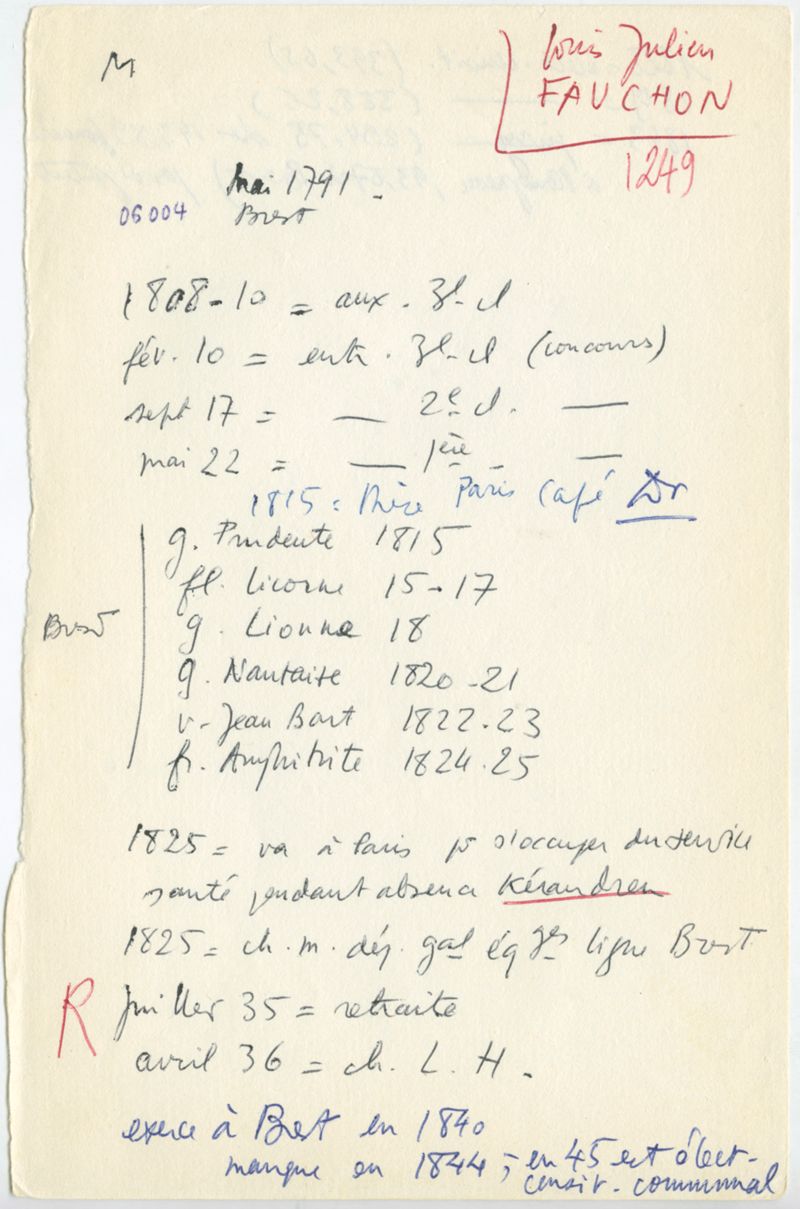 M
Louis Julien
FAUCHON
1249
mai 1791.
06004 Brest
1808-10 = aux. 3e cl
fév. 10 = entr. 3e cl (concours)
sept 17 = — 2e cl. —
mai 22 = — 1ère —
1815 = thèse Paris Café Dr
g. Prudente 1815
fl. Licorne 15-17
Brest
g. Lionne 18
g. Nantaise 1820-21
v. Jean Bart 1822.23
fr. Amphitrite 1824.25
1825 = va à Paris pr s'occuper du service
santé pendant absence Kérandren
1825 = ch. m. dép. gal éqges ligne Brest
R juillet 35 = retraite
avril 36 = ch. L. H.
exerce à Brest en 1840
manque en 1844 ; en 45 est élect-
censit. communal